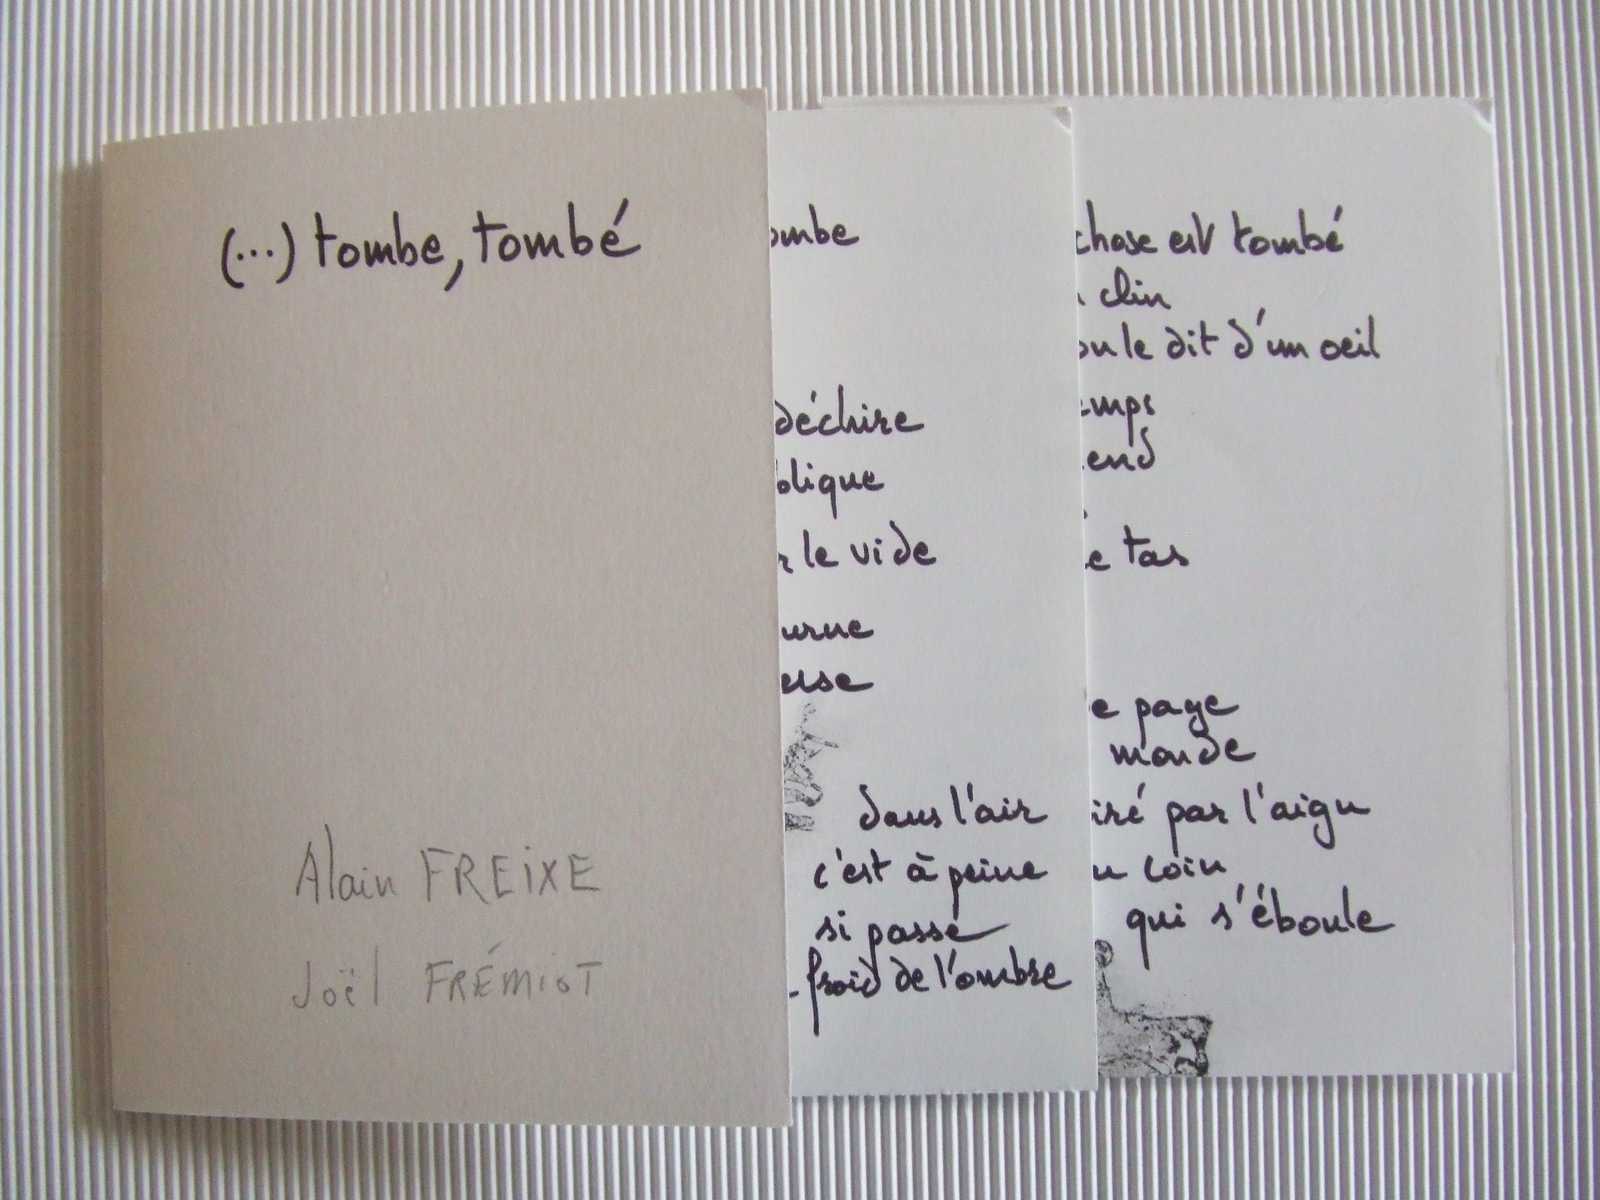 (...) tombe, tombé
Alain FREIXE
Joël FRÉMIOT
ombe
déchire
blique
r le vide
urne
erse
dans l'air
c'est à peine
si passe
froid de l'ombre
chose est tombé
clin
ou le dit d'un oeil
emps
end
e tas
e page
monde
iré par l'aigu
u coin
qui s'éboule